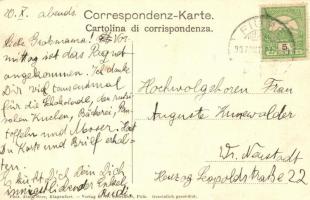 10. X. abends.
Correspondenz-Karte.
Cartolina di corrispondenza.
FIUME
5
Liebe Großmama!
mittag ist das Paquet
angekommen. Ich danke
Dir viel tausendmal
für die Chokolade, den
Kuchen, Bäckerei,
und Messer. Hast
Du Karte und Brief erhal-
ten.
Es küßt Dich Dein Dich
innigst liebender Enkel
Rudi
Hochwolgeboren Frau
Auguste Kunewalder
Wr. Neustadt
Herzog Leopoldstraße 22
Klagenfurt. – Verlag